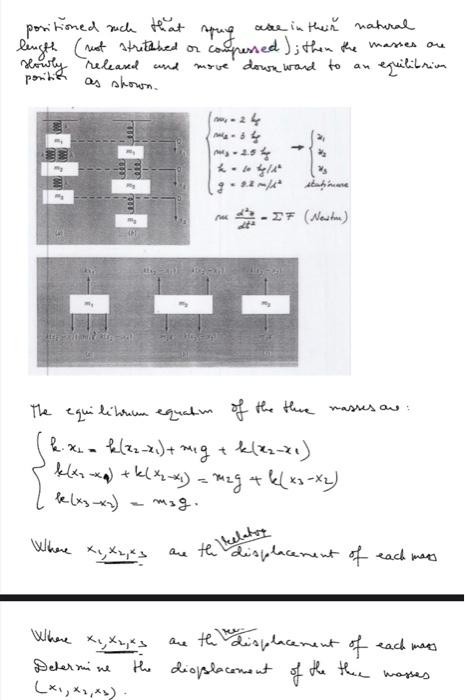 positioned such that spug are in their natural
length (not stretched or compressed); then the masses are
slowly released and move downward to an equilibrium
position as shown.
m₁ = 2 kg
m₂ = 3 kg
m₃ = 2.5 kg
k = 10 kg/s²
g = 9.8 m/s²
x₁
x₂
x₃
m d²x/dt² = ΣF (Newton)
m₁
m₂
m₃
(a)
m₁
m₂
m₃
(b)
m₁
m₂
m₃
The equilibrium equation of the three masses are:
k.x₁ = k(x₂-x₁) + m₁g + k(x₂-x₁)
k(x₂-x₁) + k(x₂-x₁) = m₂g + k(x₃-x₂)
k(x₃-x₂) = m₃g.
Where x₁,x₂,x₃ are the displacement of each mass
Where x₁,x₂,x₃ are the displacement of each mass
Determine the displacement of the three masses
(x₁,x₂,x₃).